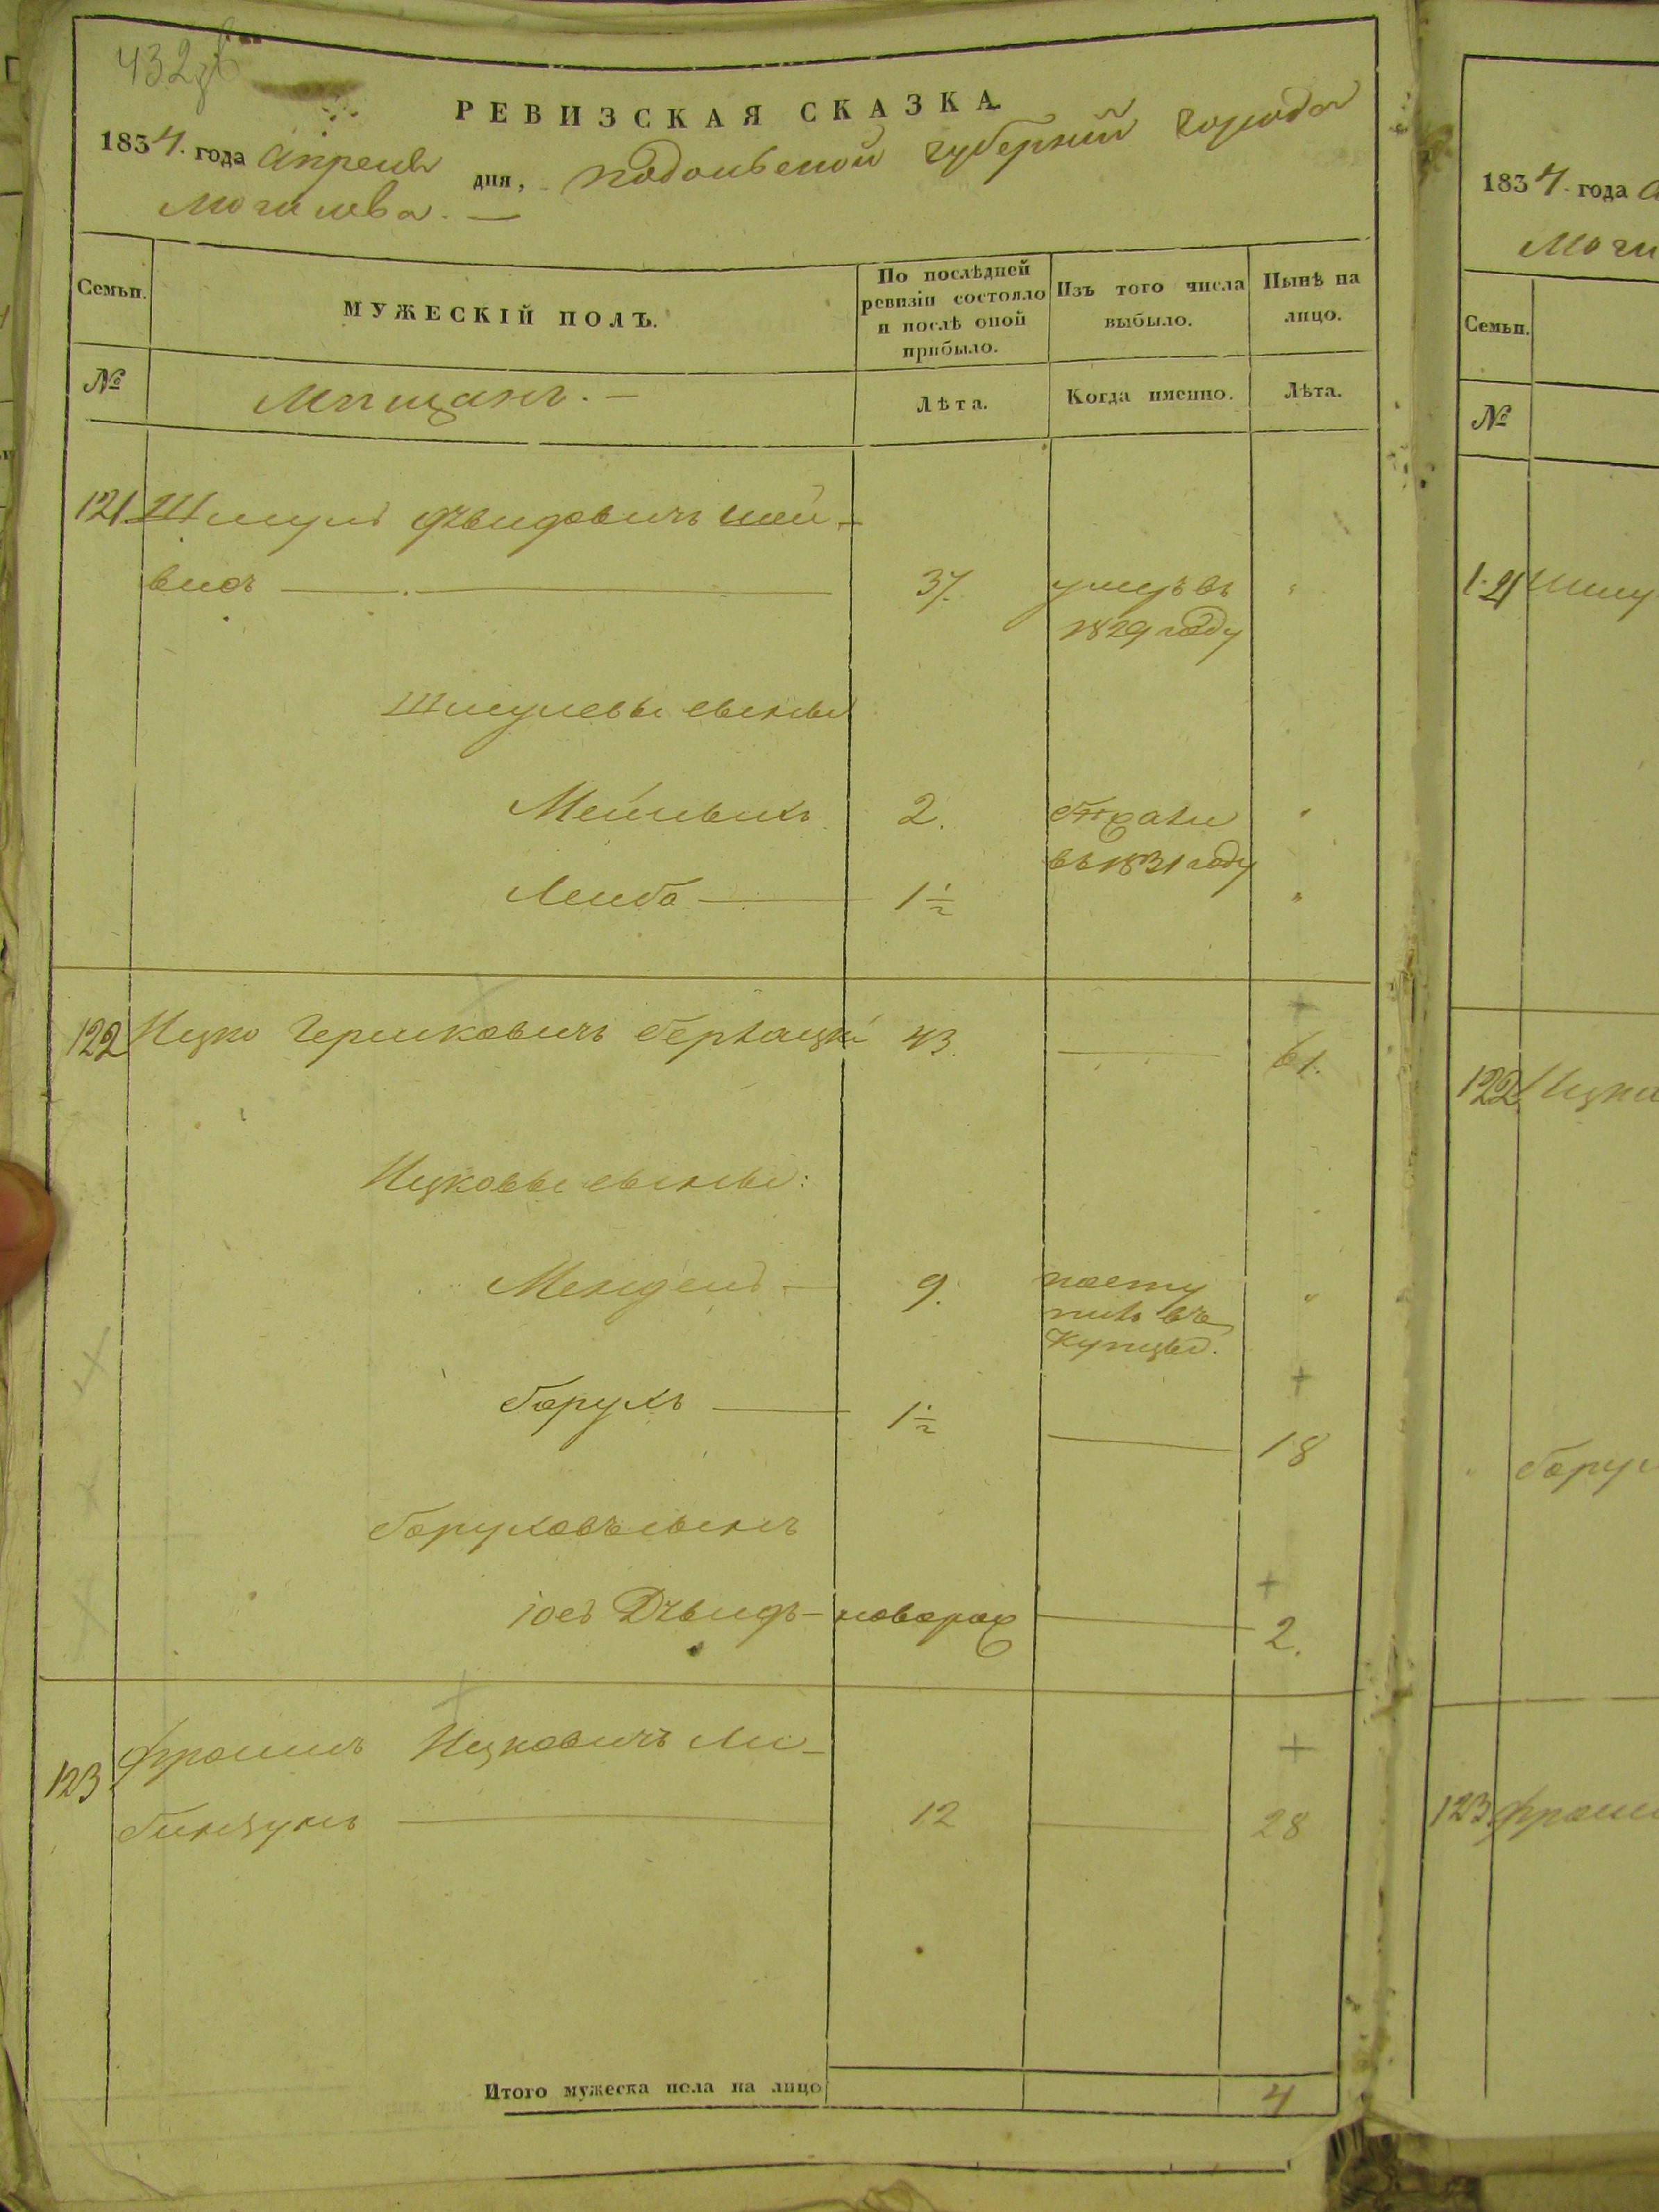 432
РЕВИЗСКАЯ СКАЗКА
1834. года Апреля дня, Подольской губерніи города
Могилева. —
Семьи.
МУЖЕСКІЙ ПОЛЪ.
По послѣдней ревизіи состояло и послѣ оной прибыло.
Изъ того числа выбыло.
Нынѣ на лицо.
№
Мѣщанъ. —
Лѣта.
Когда именно.
Лѣта.
121. Шмуль Дувидовичъ Шей-
37. умеръ въ "
1829 году
Шмулевы сыновья
Мейлихъ 2. въ 1831 году "
Лейба 1½ "
122 Ицко Гершковичъ 43. 61.
Ицковы сыновья:
Мендель 9. посту "
пилъ въ
купцы.
Борухъ 1½ 18
Боруховъ сынъ
Іось Дувидъ — новорож 2.
123 Фроимъ Ицковичъ Ли-
12 28
Итого мужеска пола на лицо 4
1834. года
Моги
Семьи.
№
121 Шму
122 Ицко
Борух
123. Фроим